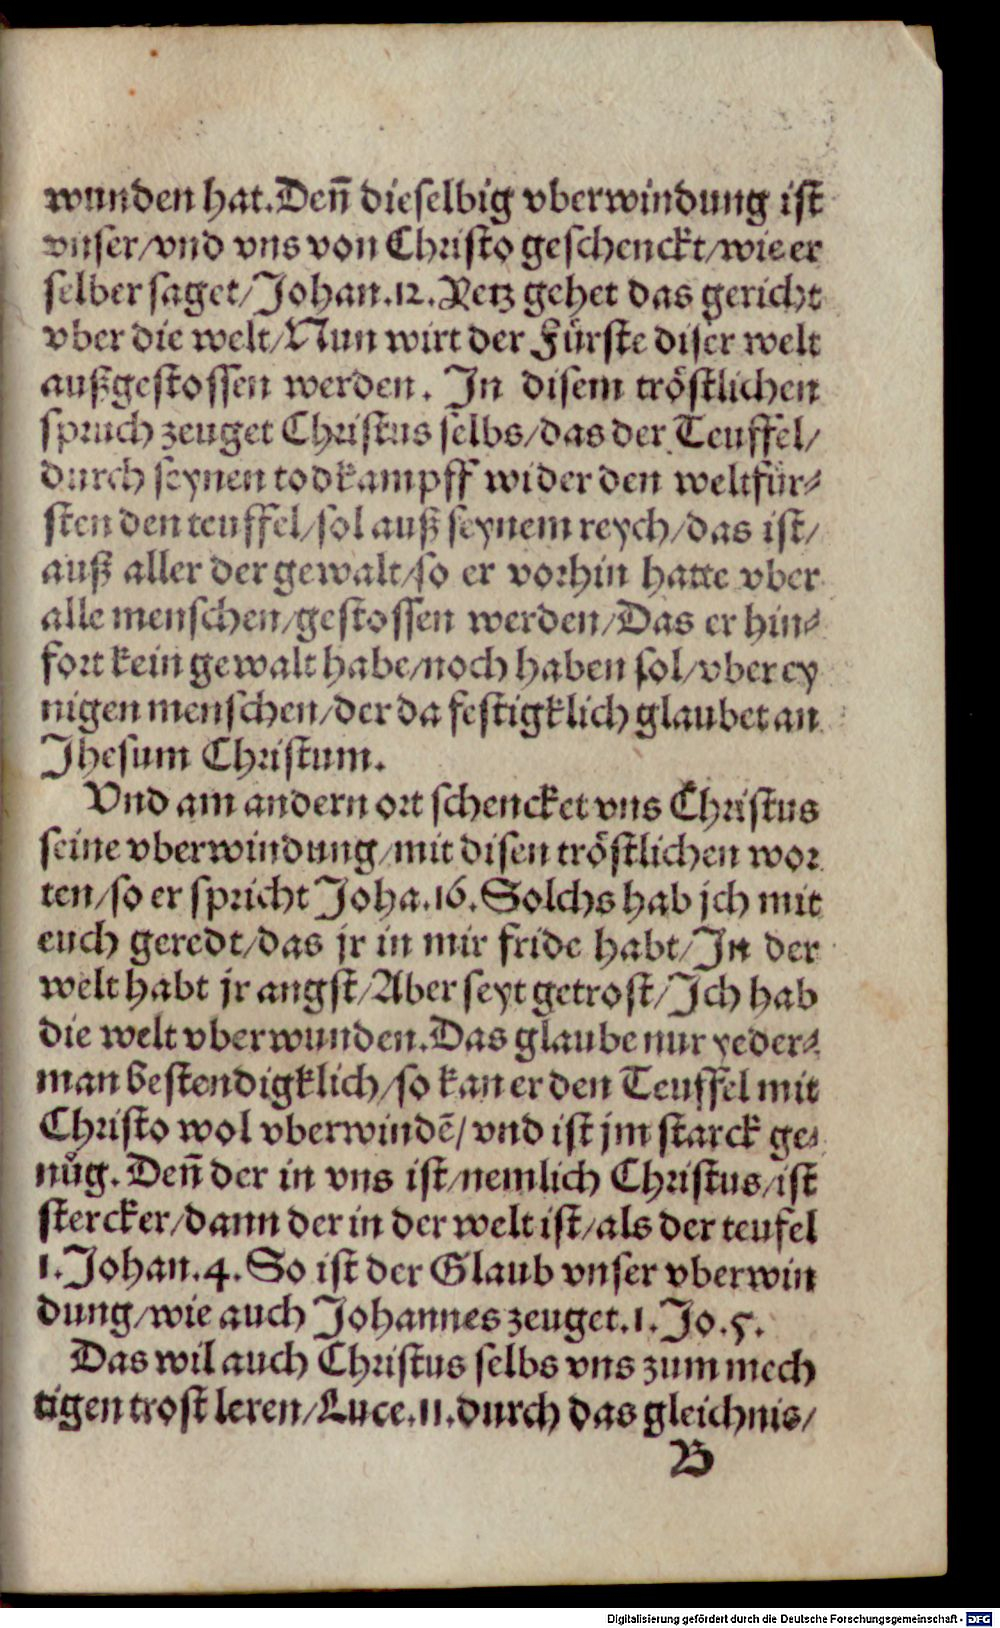 wunden hat. Deñ dieselbig vberwindung ist
vnser/vnd vns von Christo geschenckt/wie er
selber saget/Johan.12. Yetz gehet das gericht
vber die welt/Nun wirt der Fürste diser welt
außgestossen werden. In disem tröstlichen
spruch zeuget Christus selbs/das der Teuffel/
durch seynen todkampff wider den weltfür-
sten den teuffel/sol auß seynem reych/das ist/
auß aller der gewalt/so er vorhin hatte vber
alle menschen/gestossen werden/Das er hin-
fort kein gewalt habe/noch haben sol/vber ey
nigen menschen/der da festigklich glaubet an
Jhesum Christum.
Vnd am andern ort schencket vns Christus
seine vberwindung/mit disen tröstlichen wor
ten/so er spricht Joha.16. Solchs hab jch mit
euch geredt/das jr in mir fride habt/In der
welt habt jr angst/Aber seyt getrost/Ich hab
die welt vberwunden. Das glaube nur yeder-
man bestendigklich/so kan er den Teuffel mit
Christo wol vberwindẽ/vnd ist jm starck ge-
nůg. Deñ der in vns ist/nemlich Christus/ist
stercker/dann der in der welt ist/als der teufel
1. Johan.4. So ist der Glaub vnser vberwin
dung/wie auch Johannes zeuget.1. Jo.5.
Das wil auch Christus selbs vns zum mech
tigen trost leren/Luce.11. durch das gleichnis/
B
Digitalisierung gefördert durch die Deutsche Forschungsgemeinschaft - DFG